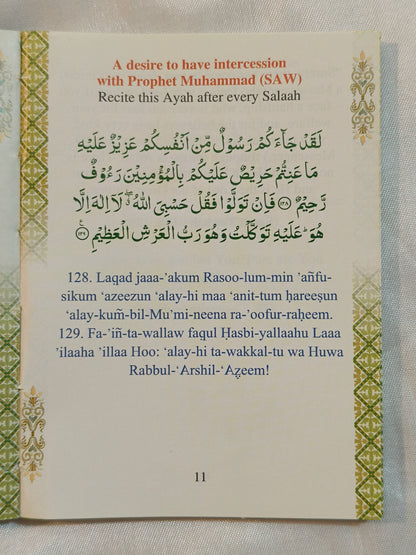 A desire to have intercession
with Prophet Muhammad (SAW)
Recite this Ayah after every Salaah
لَقَدْ جَآءَكُمْ رَسُوْلٌ مِّنْ اَنْفُسِكُمْ عَزِيْزٌ عَلَيْهِ
مَا عَنِتُّمْ حَرِيْصٌ عَلَيْكُمْ بِالْمُؤْمِنِيْنَ رَءُوْفٌ
رَّحِيْمٌ ﴿١٢٨﴾ فَاِنْ تَوَلَّوْا فَقُلْ حَسْبِيَ اللّٰهُ ۖ لَآ اِلٰهَ اِلَّا
هُوَ ؕ عَلَيْهِ تَوَكَّلْتُ وَهُوَ رَبُّ الْعَرْشِ الْعَظِيْمِ ﴿١٢٩﴾
128. Laqad jaaa-’akum Rasoo-lum-min ’añfu-
sikum ‘azeezun ‘alay-hi maa ‘anit-tum ḥareeṣun
‘alay-kum̃-bil-Mu’mi-neena ra-’oofur-raḥeem.
129. Fa-’iñ-ta-wallaw faqul Ḥasbi-yallaahu Laaa
’ilaaha ’illaa Hoo: ‘alay-hi ta-wakkal-tu wa Huwa
Rabbul-‘Arshil-‘Aẓeem!
11